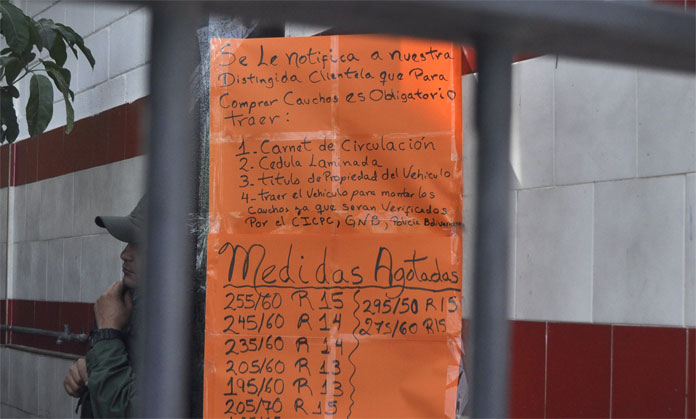 Se Le notifica a nuestra
Distinguida Clientela que Para
Comprar Cauchos es Obligatorio
traer:
1. Carnet de Circulación
2. Cedula Laminada
3. titulo de Propiedad del Vehiculo
4- traer el Vehiculo para montar los
Cauchos ya que seran Verificados
Por el CICPC, GNB, Policia
Medidas Agotadas
255/60 R 15
245/60 R 14
235/60 R 14
205/60 R 13
195/60 R 13
205/70 R 15
295/50 R15
275/60 R15